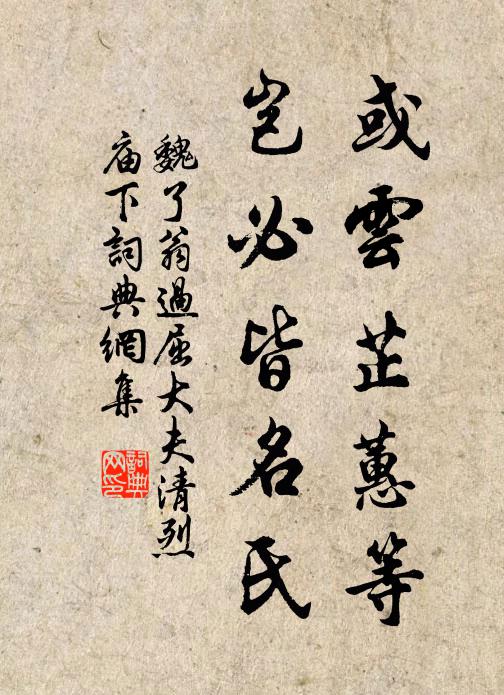 或雲芷蕙等
豈必皆名氏
魏了翁過屈大夫清烈
庙下詞典網集
詞典网印